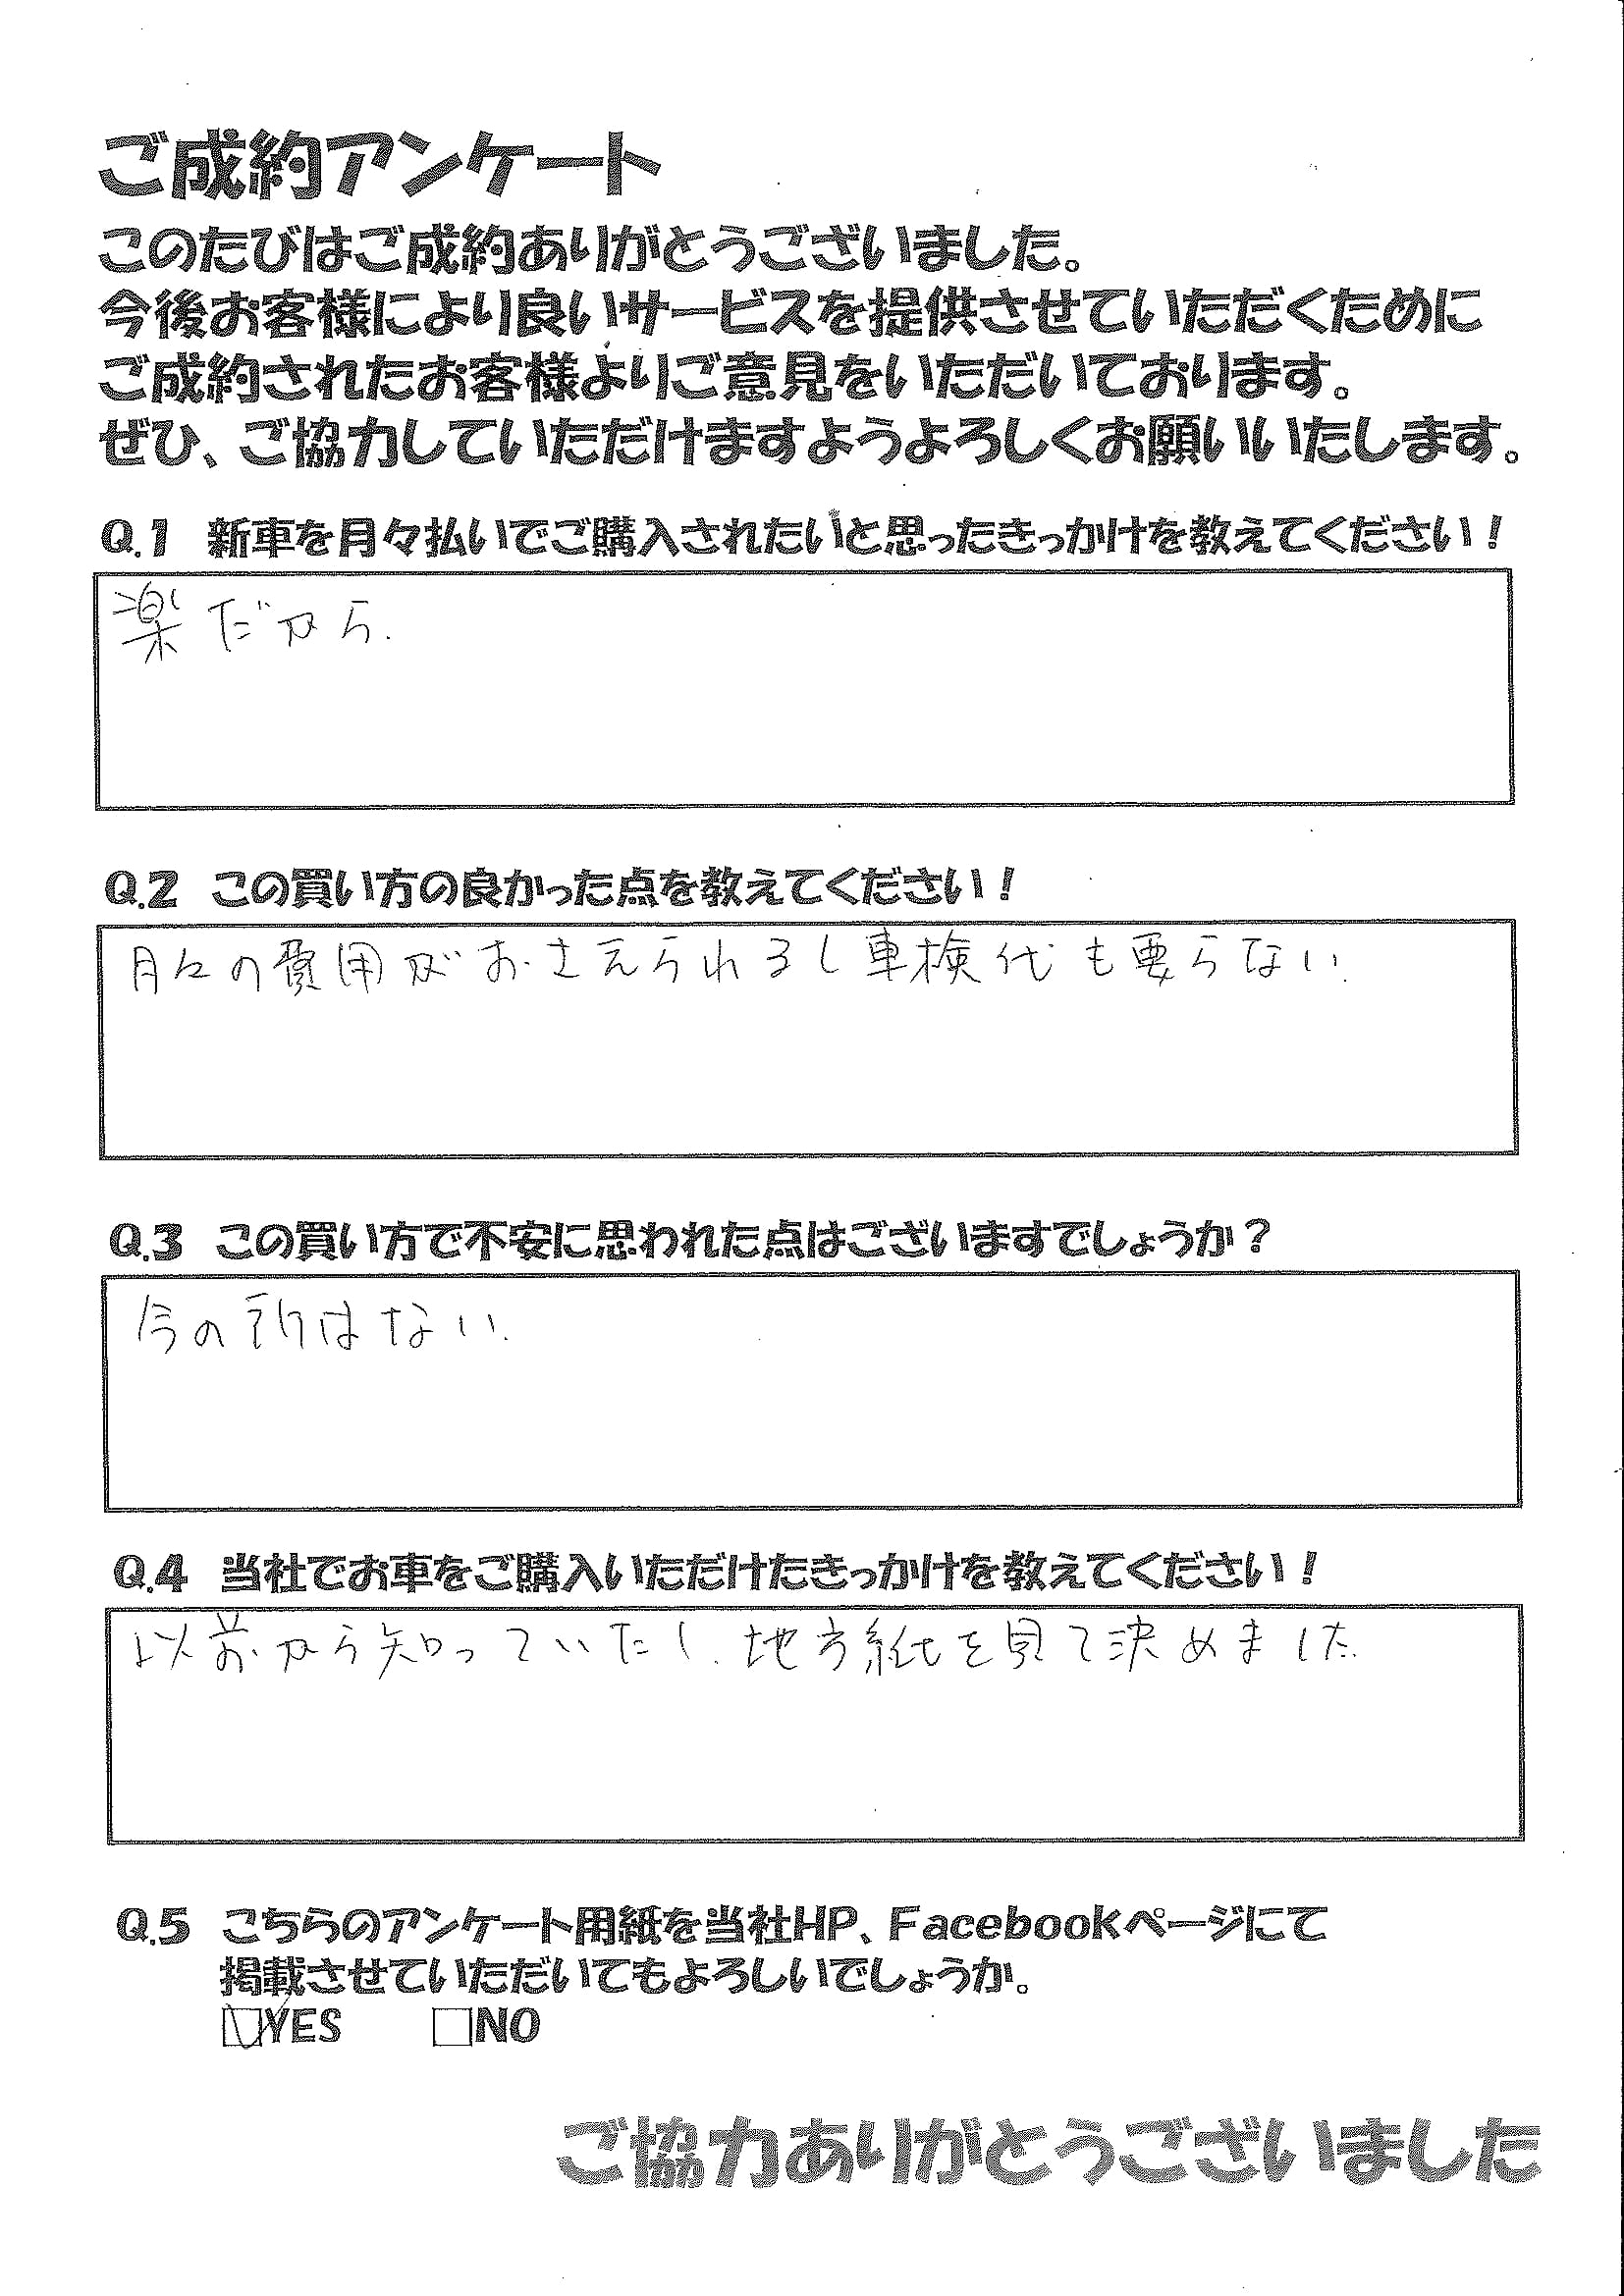 ご成約アンケート
このたびはご成約ありがとうございました。
今後お客様により良いサービスを提供させていただくために
ご成約されたお客様よりご意見をいただいております。
ぜひ、ご協力していただけますようよろしくお願いいたします。
Q.1 新車を月々払いでご購入されたいと思ったきっかけを教えてください！
楽だから.
Q.2 この買い方の良かった点を教えてください！
月々の費用がおさえられるし車検代も要らない.
Q.3 この買い方で不安に思われた点はございますでしょうか？
今の所はない.
Q.4 当社でお車をご購入いただけたきっかけを教えてください！
以前から知っていたし、地方紙を見て決めました.
Q.5 こちらのアンケート用紙を当社HP、Facebookページにて
掲載させていただいてもよろしいでしょうか。
☑YES □NO
ご協力ありがとうございました